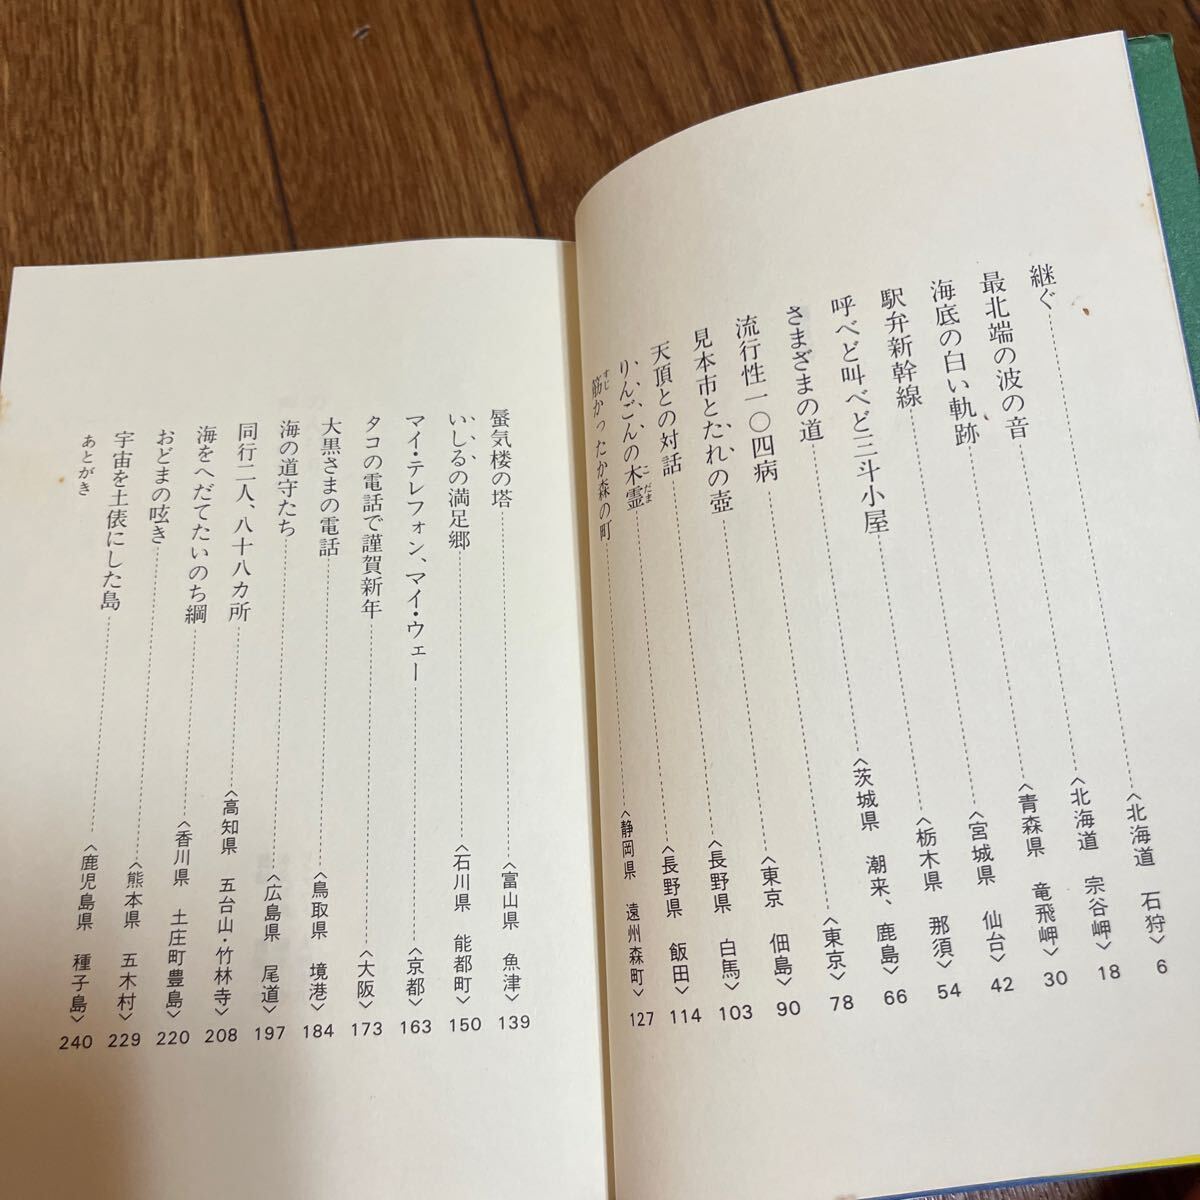 継ぐ……〈北海道 石狩〉 6
最北端の波の音……〈北海道 宗谷岬〉 18
海底の白い軌跡……〈青森県 竜飛岬〉 30
駅弁新幹線……〈宮城県 仙台〉 42
呼べど叫べど三斗小屋……〈栃木県 那須〉 54
さまざまの道……〈茨城県 潮来、鹿島〉 66
流行性一〇四病……〈東京〉 78
見本市とたれの壺……〈東京 佃島〉 90
天頂との対話……〈長野県 白馬〉 103
りんごんの木霊こだま……〈長野県 飯田〉 114
筋すじかったか森の町……〈静岡県 遠州森町〉 127
蜃気楼の塔……〈富山県 魚津〉 139
いしるの満足郷……〈石川県 能都町〉 150
マイ・テレフォン、マイ・ウェー……〈京都〉 163
タコの電話で謹賀新年……〈大阪〉 173
大黒さまの電話……〈鳥取県 境港〉 184
海の道守たち……〈広島県 尾道〉 197
同行二人、八十八カ所……〈高知県 五台山・竹林寺〉 208
海をへだてたいのち綱……〈香川県 土庄町豊島〉 220
おどまの呟き……〈熊本県 五木村〉 229
宇宙を土俵にした島……〈鹿児島県 種子島〉 240
あとがき